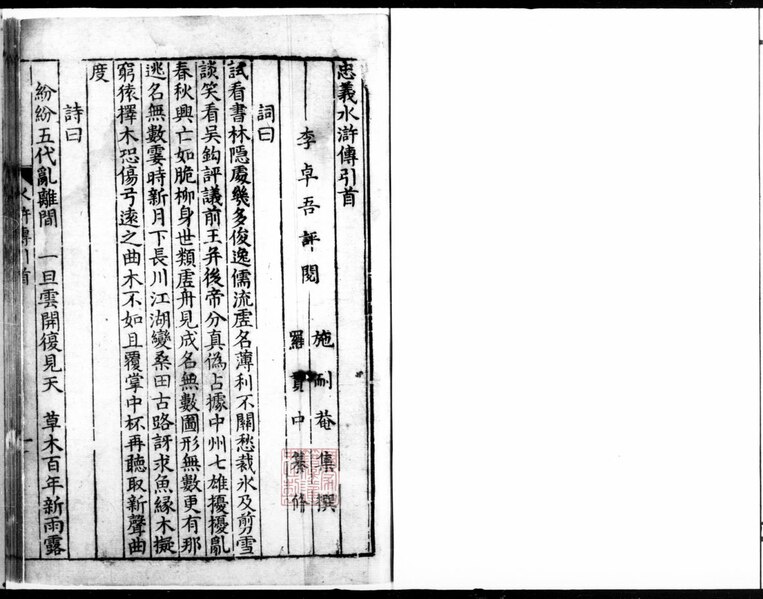 忠義水滸傳引首
李卓吾評閱
施耐菴集撰
羅貫中纂修
詞曰
試看書林隱處幾多俊逸儒流虛名薄利不關愁裁氷及剪雪
談笑看吳鈎評議前王幷後帝分眞僞占據中州七雄擾擾亂
春秋興亡如脆柳身世類虛舟見成名無數圖形無數更有那
逃名無數霎時新月下長川江湖變桑田古路訝求魚緣木擬
窮猿擇木恐傷弓遠之曲木不如且覆掌中杯再聽取新聲曲
度
詩曰
紛紛五代亂離間 一旦雲開復見天 草木百年新雨露
水滸傳引首
一